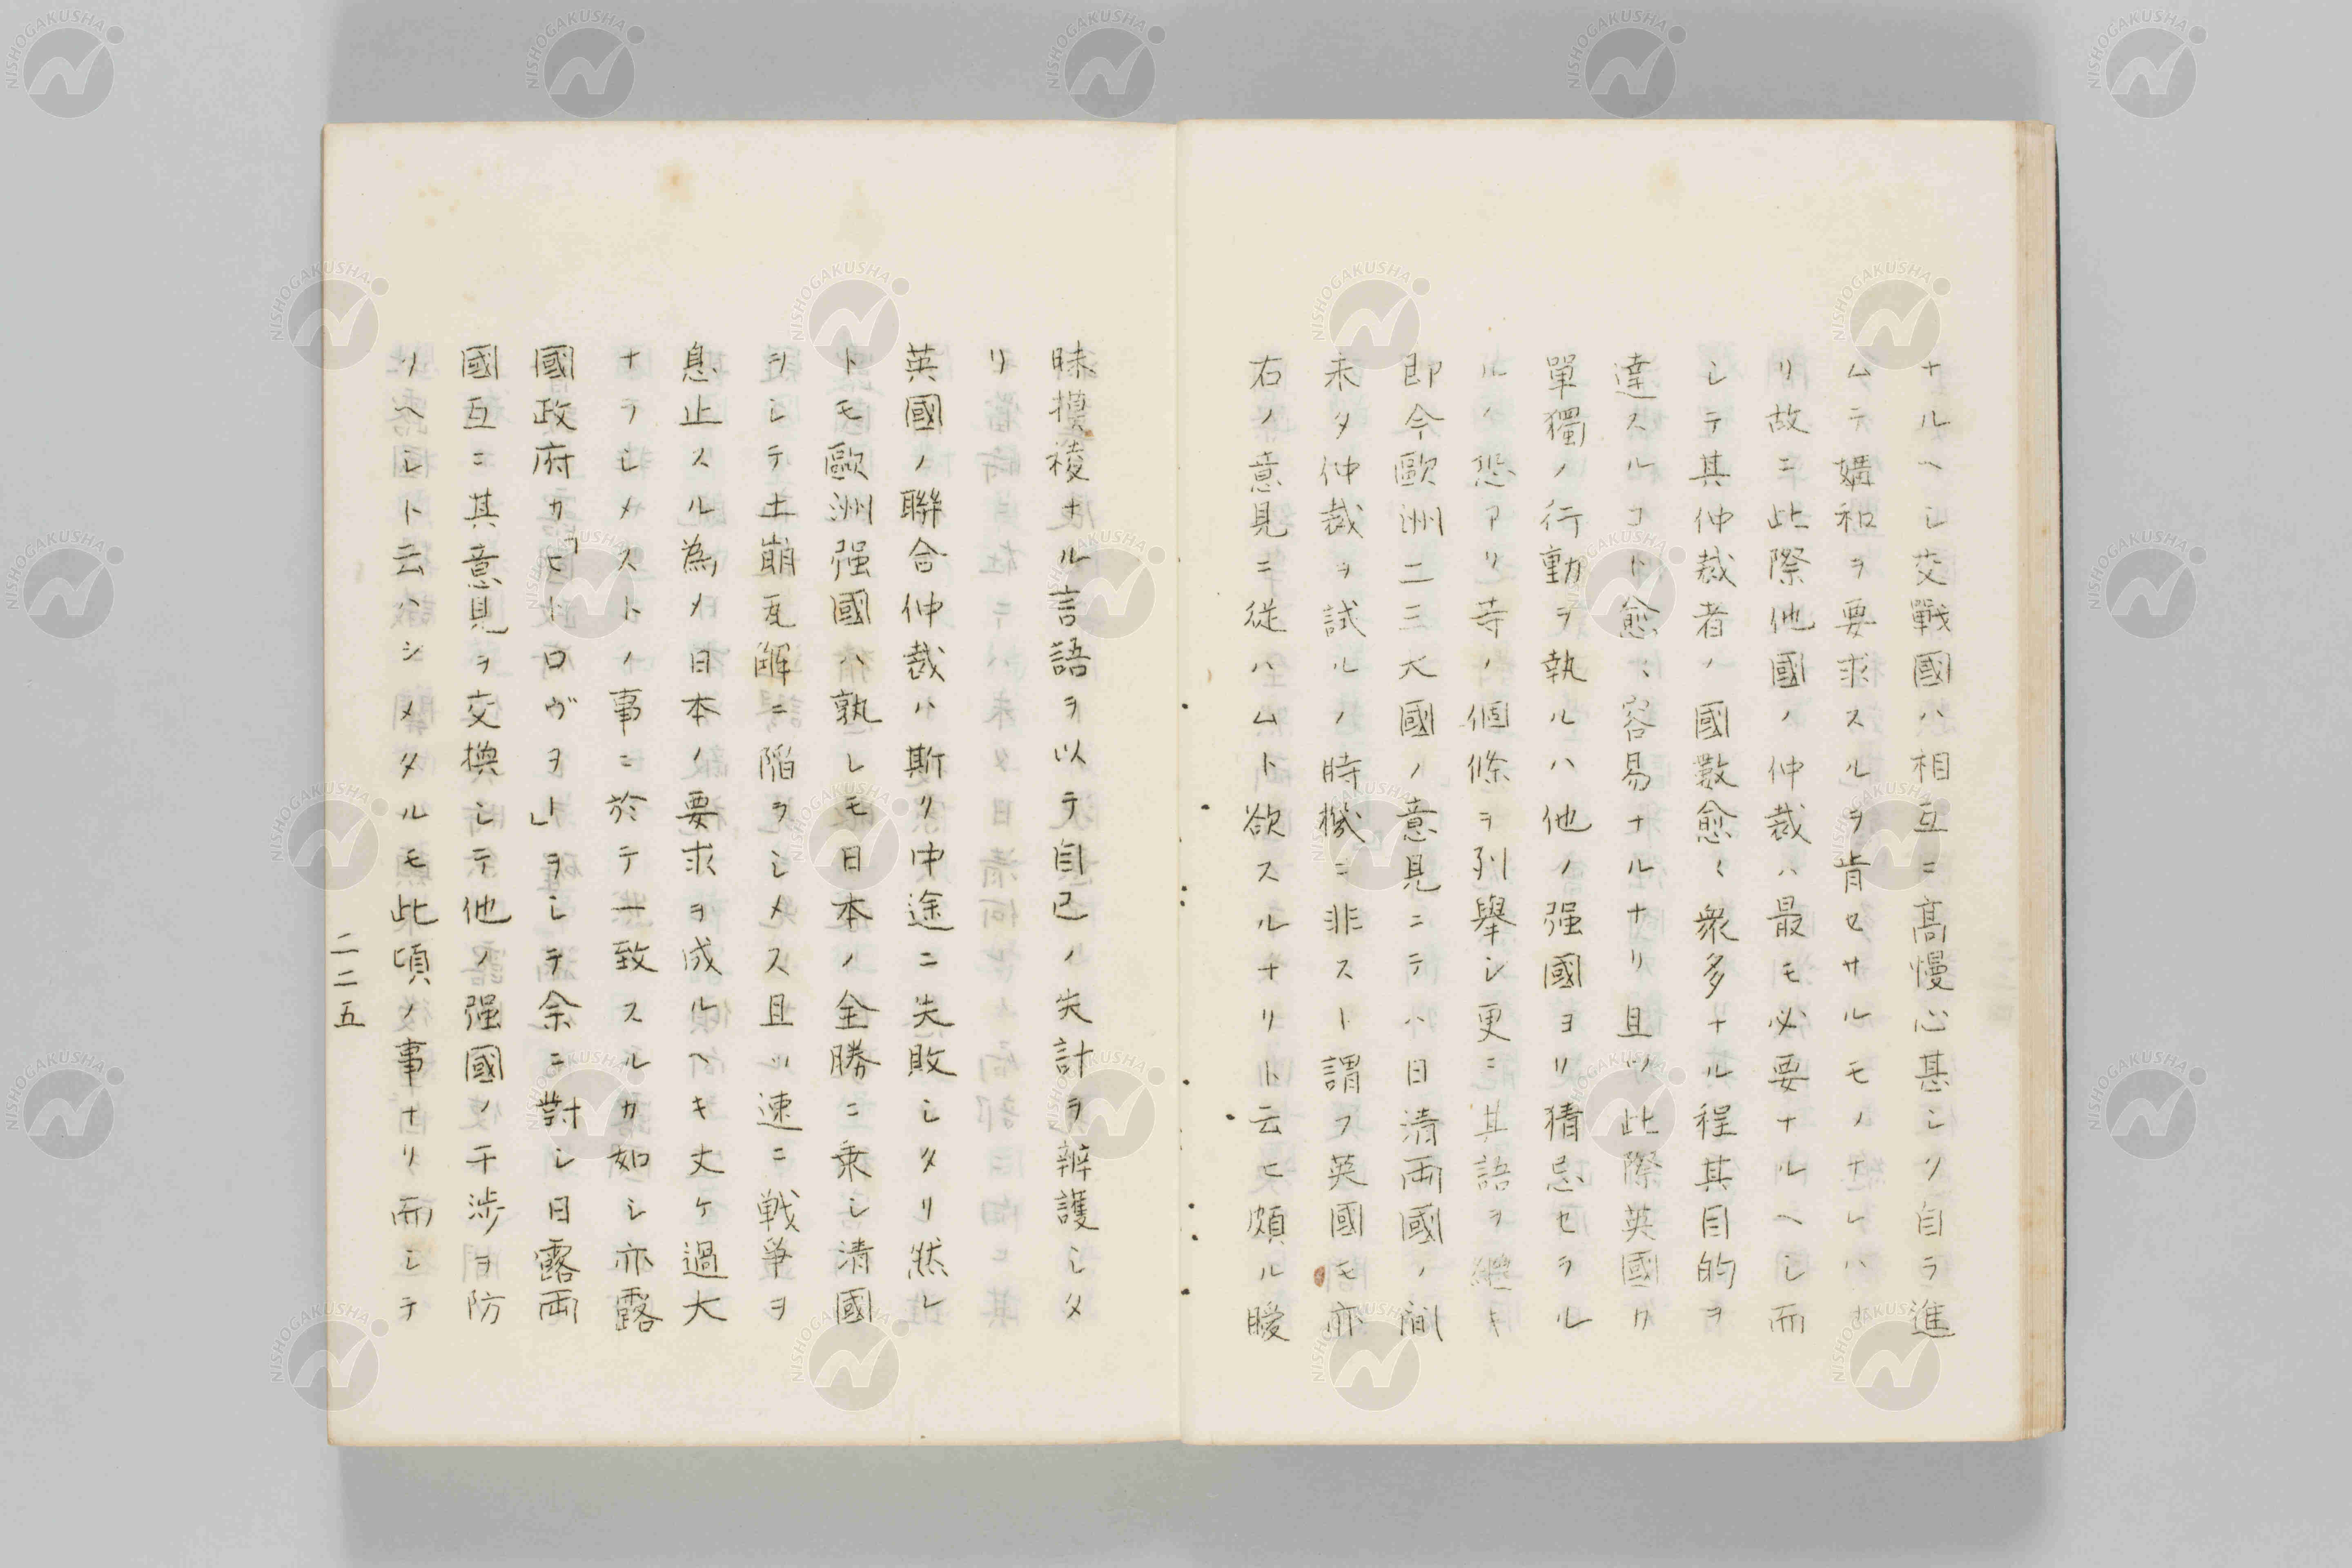 ナルヘシ交戰國ハ相互ニ高慢心甚シク自ラ進
ムテ媾和ヲ要求スルヲ肯セサルモノナレハナ
リ故ニ此際他國ノ仲裁ハ最モ必要ナルヘシ而
シテ其仲裁者ノ國數愈〻衆多ナル程其目的ヲ
達スルコト愈〻容易ナルナリ且ツ此際英國カ
單獨ノ行動ヲ執ルハ他ノ强國ヨリ猜忌セラル
ルノ恐アリ等ノ個條ヲ列擧シ更ニ其語ヲ繼キ
即今歐洲二三大國ノ意見ニテハ日清兩國ノ間
未タ仲裁ヲ試ルノ時機ニ非スト謂フ英國モ亦
右ノ意見ニ從ハムト欲スルナリト云ヒ頗ル曖
昧摸稜ナル言語ヲ以テ自己ノ失計ヲ辨護シタ
リ
英國ノ聯合仲裁ハ斯ク中途ニ失敗シタリ然レ
トモ歐洲强國ハ孰レモ日本ノ全勝ニ乘シ清國
ヲシテ土崩瓦解ニ陷ラシメス且ツ速ニ戰爭ヲ
息止スル為メ日本ノ要求ヲ成ルヘキ丈ケ過大
ナラシメストノ事ニ於テ一致スルカ如シ亦露
國政府カ「ヒトロヴヲー」ヲシテ余ニ對シ日露兩
國互ニ其意見ヲ交換シテ他ノ强國ノ干渉ヲ防
クヘシト云ハシメタルモ此頃ノ事ナリ而シテ
二二五
NISHOGAKUSHA